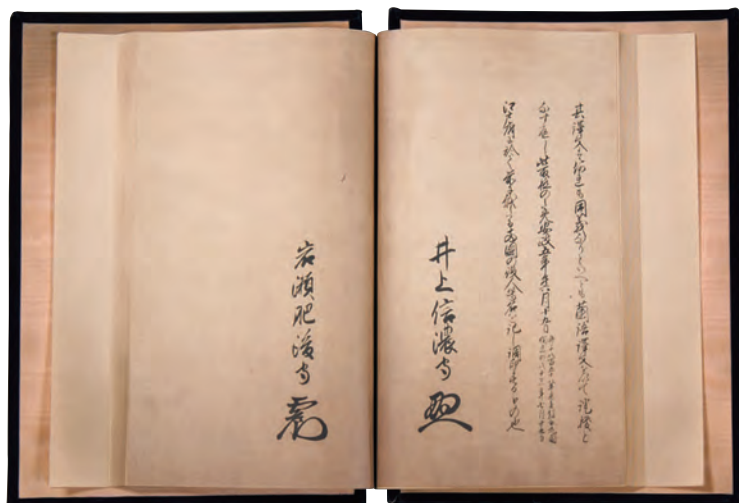 其譯文ハ何れも同義なりといへとも蘭語譯文を以て證據と
為すへし此取極の為安政五年午六月十九日
江戸府に於て前に載たる両國の役人等名を記し調印する者也
井上信濃守
岩瀬肥後守